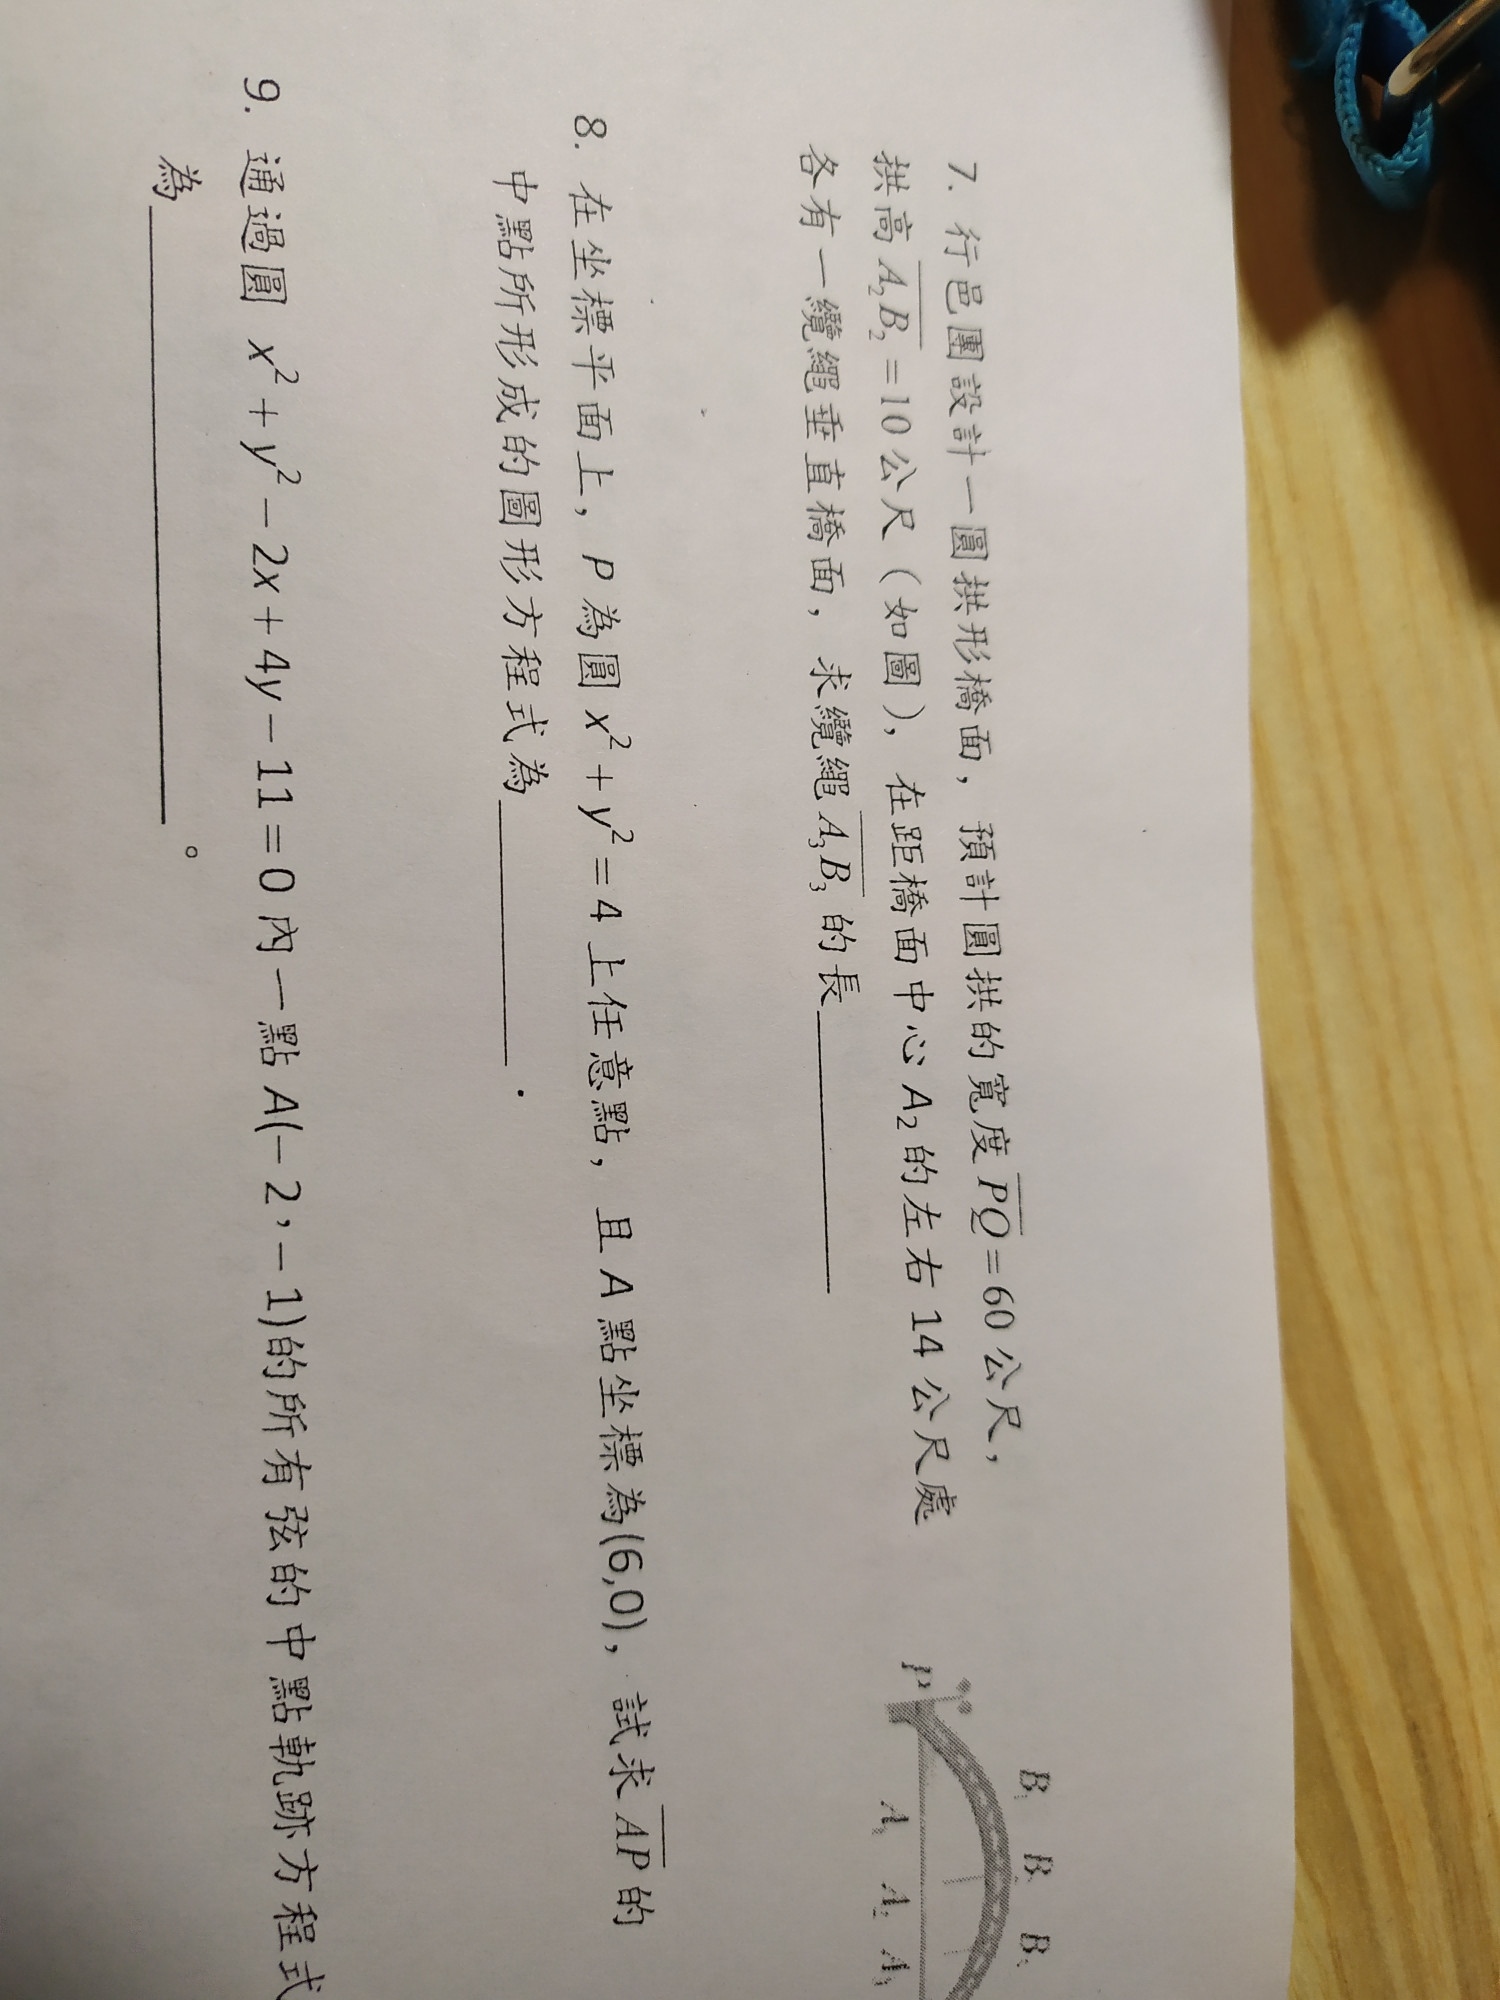 7. 行邑團設計一圓拱形橋面，預計圓拱的寬度 PQ=60 公尺，
拱高 A₂B₂=10 公尺（如圖），在距橋面中心 A₂ 的左右 14 公尺處
各有一纜繩垂直橋面，求纜繩 A₃B₃ 的長________
P B₁ B₂ B₃
A₁ A₂ A₃
8. 在坐標平面上，P 為圓 x²+y²=4 上任意點，且 A 點坐標為(6,0)，試求 AP 的
中點所形成的圖形方程式為________．
9. 通過圓 x²+y²−2x+4y−11=0 內一點 A(−2，−1)的所有弦的中點軌跡方程式
為________。